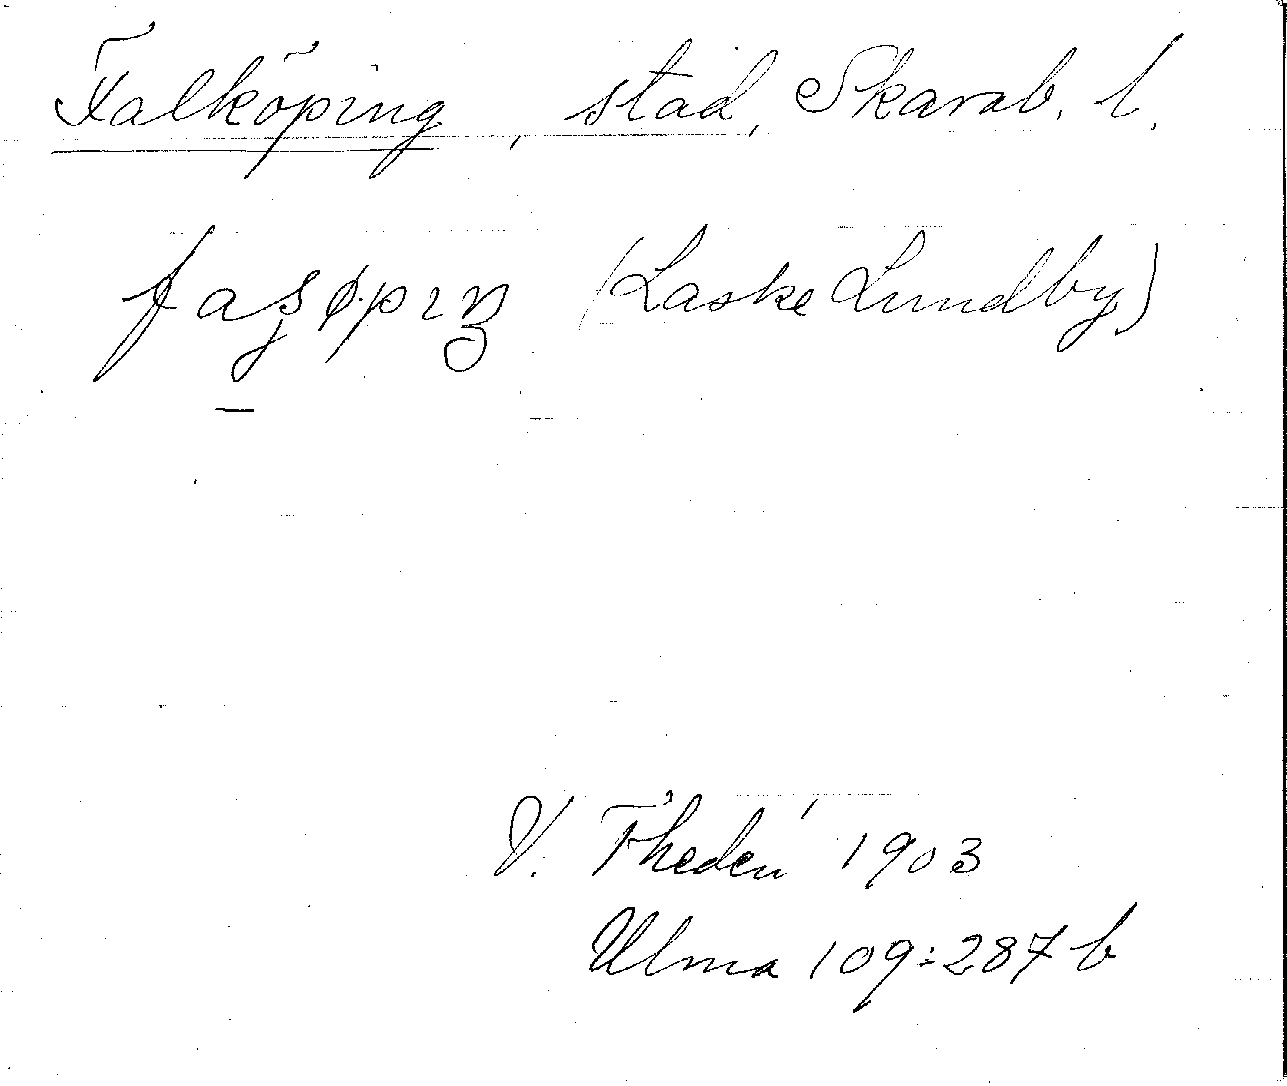 Falköping, stad, Skarab. l.
(Laske Lundby)
V. Thedén 1903
Ulma 109:287 b